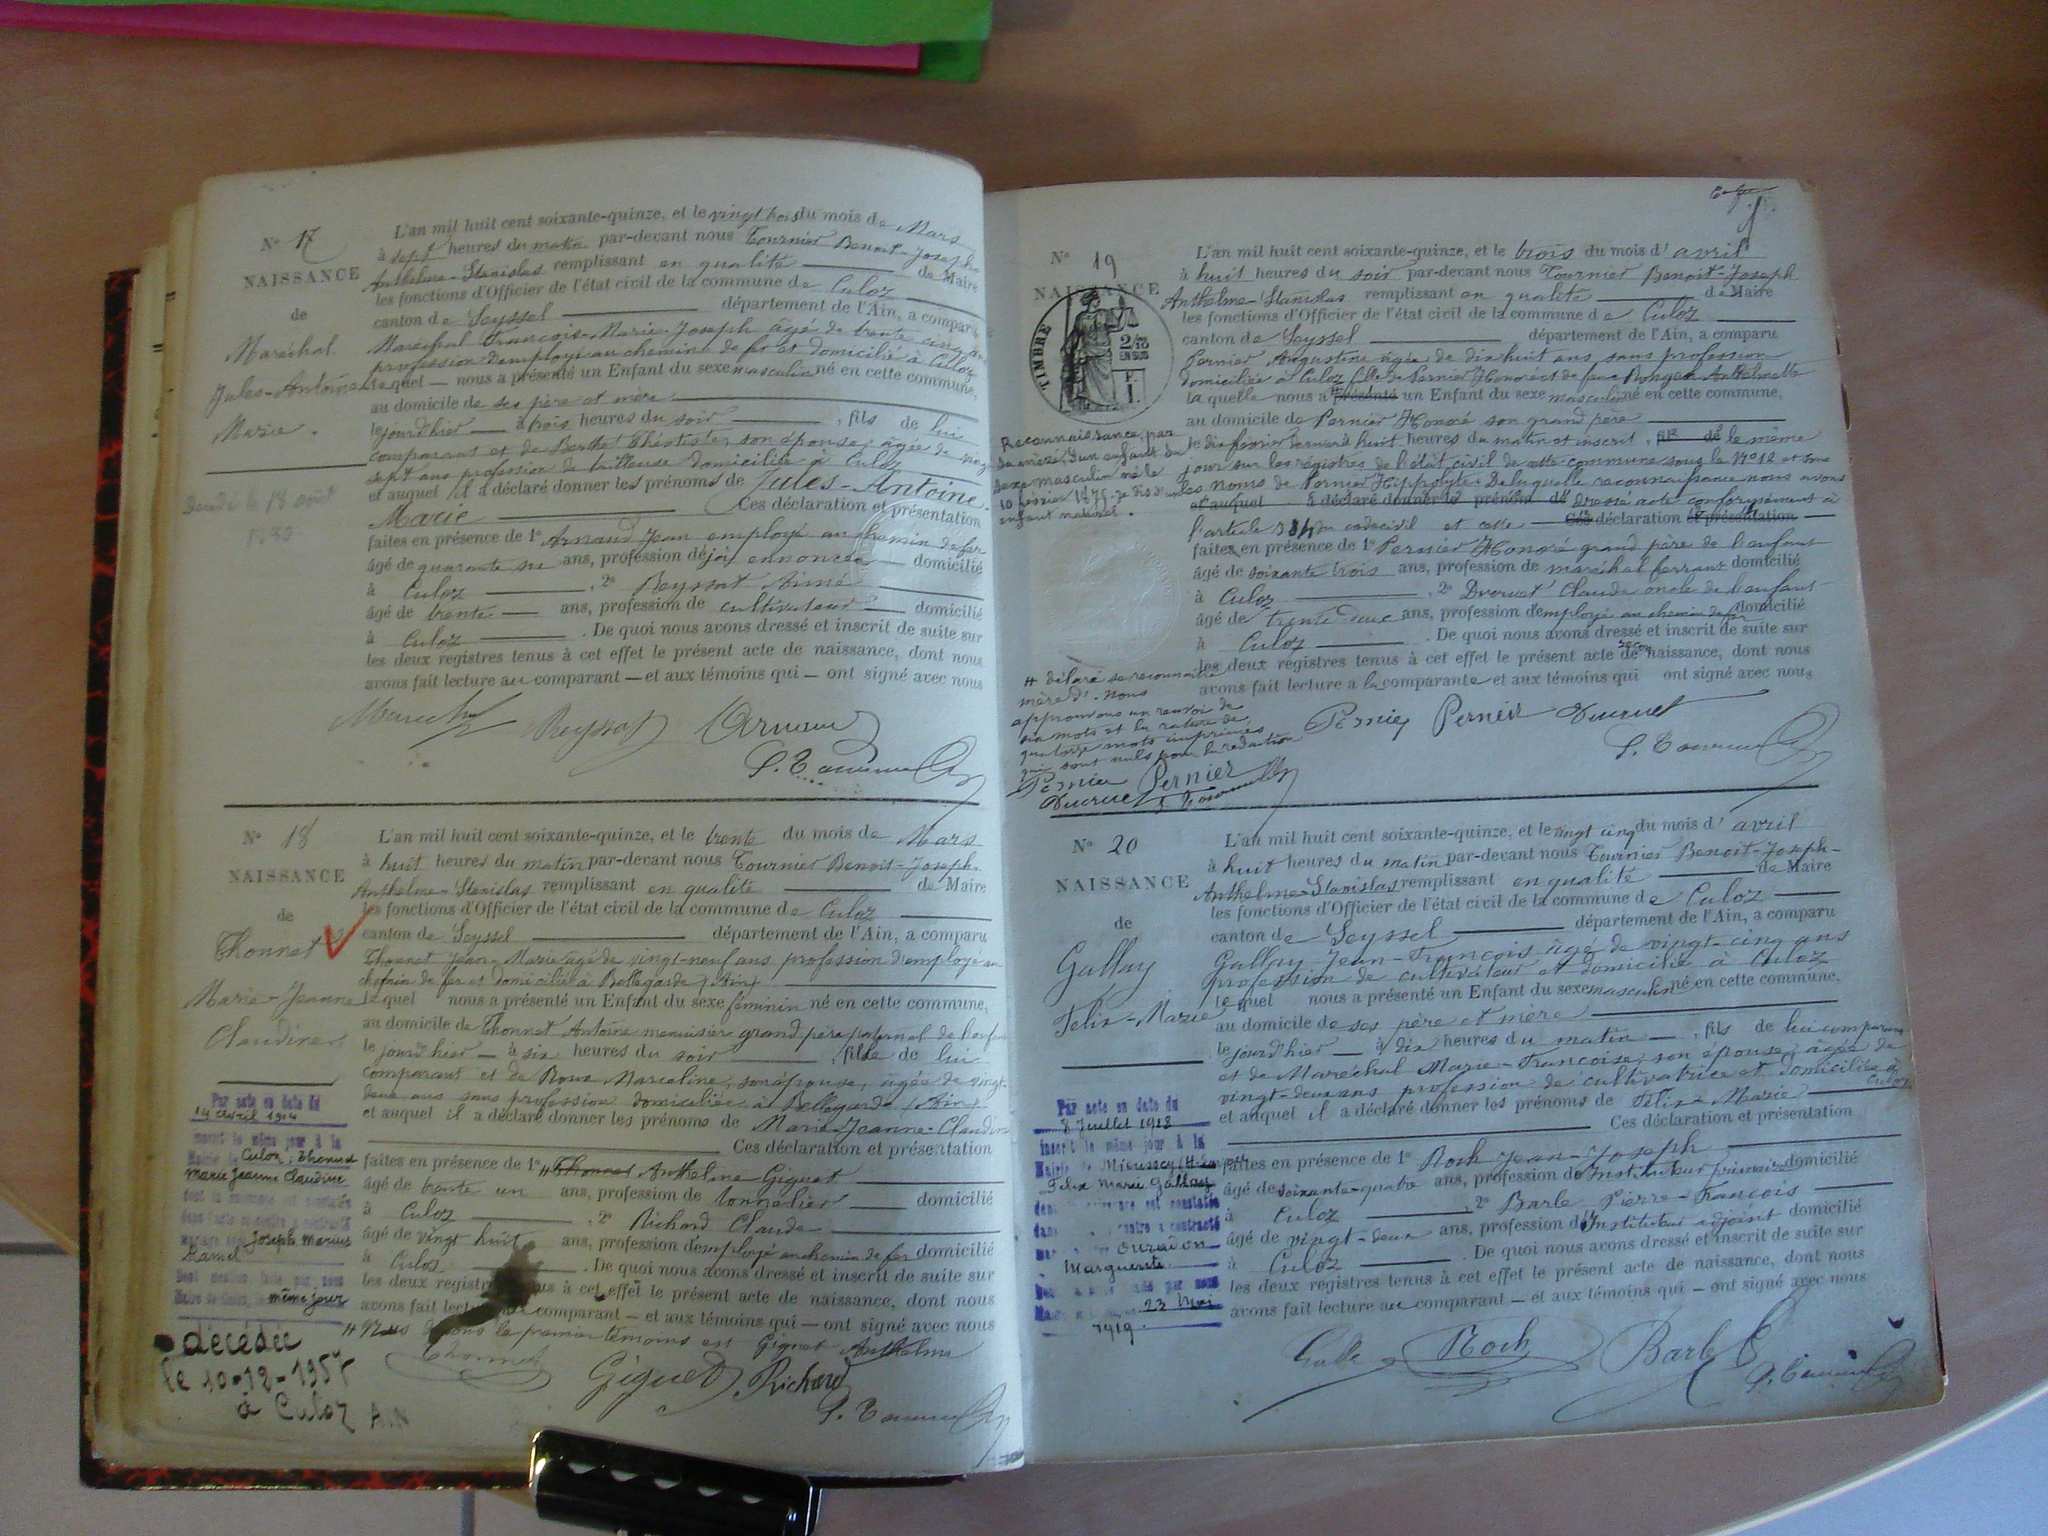 N° 17
NAISSANCE
de
Maréchal
Jules-Antoine
Marie.
Décédé le 18 août
L'an mil huit cent soixante-quinze, et le vingt trois du mois de Mars
à sept heures du matin par-devant nous Tournier Benoit-Joseph
Anthelme-Stanislas remplissant en qualité de Maire
les fonctions d'Officier de l'état civil de la commune de Culoz
canton de Seyssel département de l'Ain, a comparu
Maréchal François-Marie-Joseph âgé de trente cinq ans
profession d'employé au chemin de fer et domicilié à Culoz
lequel — nous a présenté un Enfant du sexe masculin né en cette commune,
au domicile de ses père et mère
le jourd'hier — à trois heures du soir , fils de lui
comparant et de Berthet Théotiste, son épouse, âgée de vingt
sept ans profession de tailleuse domiciliée à Culoz
et auquel il a déclaré donner les prénoms de Jules-Antoine
Marie Ces déclaration et présentation
faites en présence de 1° Arnaud Jean employé au chemin de fer
âgé de quarante un ans, profession déjà ennoncée domicilié
à Culoz , 2° Beyssat Aimé
âgé de trente — ans, profession de cultivateur domicilié
à Culoz . De quoi nous avons dressé et inscrit de suite sur
les deux registres tenus à cet effet le présent acte de naissance, dont nous
avons fait lecture au comparant — et aux témoins qui — ont signé avec nous
Beyssat Arnaud
N° 18
NAISSANCE
de
Thonnet
Marie-Jeanne
Claudine
Par acte en date du
14 avril 1914
inscrit le même jour à la
Mairie de Culoz, Thonnet
Marie Jeanne Claudine
dont la naissance est constatée
dans l'acte ci-contre a contracté
mariage avec Joseph Marius
Dont mention faite par nous
même jour
décédée
le 10-12-1957
à Culoz A.N
L'an mil huit cent soixante-quinze, et le trente du mois de Mars
à huit heures du matin par-devant nous Tournier Benoit-Joseph
Anthelme-Stanislas remplissant en qualité de Maire
les fonctions d'Officier de l'état civil de la commune de Culoz
canton de Seyssel département de l'Ain, a comparu
Thonnet Jean-Marie âgé de vingt-neuf ans profession d'employé au
chemin de fer et domicilié à Bellegarde (Ain)
lequel nous a présenté un Enfant du sexe féminin né en cette commune,
au domicile de Thonnet Antoine menuisier grand père paternel de l'enfant
le jourd'hier — à six heures du soir , fille de lui
comparant et de Roux Marceline, son épouse, âgée de vingt-
deux ans sans profession domiciliée à Bellegarde (Ain)
et auquel il a déclaré donner les prénoms de Marie-Jeanne-Claudine
Ces déclaration et présentation
faites en présence de 1° Thonnet Anthelme Giguet
âgé de trente un ans, profession de tonnelier domicilié
à Culoz , 2° Richard Claude
âgé de vingt huit ans, profession d'employé au chemin de fer domicilié
à Culoz . De quoi nous avons dressé et inscrit de suite sur
les deux registres tenus à cet effet le présent acte de naissance, dont nous
avons fait lecture comparant — et aux témoins qui — ont signé avec nous
le premier témoins est Giguet Anthelme
Thonnet Giguet Richard
N° 19
NAISSANCE
TIMBRE
2/10
EN SUS
F.
1.
Reconnaissance par
sa mère, d'un enfant du
sexe masculin né le
10 février 1875
enfant naturel.
# déclaré se reconnaître
mère d'. Nous
approuvons un renvoi de
six mots et la rature de
quatorze mots imprimés
qui sont nuls pour la rédaction
Pernier Pernier
L'an mil huit cent soixante-quinze, et le trois du mois d'avril
à huit heures du soir par-devant nous Tournier Benoit-Joseph
Anthelme-Stanislas remplissant en qualité de Maire
les fonctions d'Officier de l'état civil de la commune de Culoz
canton de Seyssel département de l'Ain, a comparu
Pernier Augustine âgée de dix huit ans sans profession
domiciliée à Culoz fille de Pernier Honoré et de feue Anthelmette
laquelle nous a # présenté un Enfant du sexe masculin né en cette commune,
au domicile de Pernier Honoré son grand père
le dix février dernier à huit heures du matin et inscrit, fils de le même
jour sur les régistres de l'état civil de cette commune sous le N° 12 et sous
les noms de Pernier Hippolyte. De laquelle reconnaissance nous avons
et auquel a déclaré donner les prénoms de dressé acte conformément à
l'article 334 du code civil et cette Ces déclaration et présentation
faites en présence de 1° Pernier Honoré grand père de l'enfant
âgé de soixante trois ans, profession de maréchal ferrant domicilié
à Culoz , 2° Claude oncle de l'enfant
âgé de trente deux ans, profession d'employé au chemin de fer domicilié
à Culoz . De quoi nous avons dressé et inscrit de suite sur
les deux registres tenus à cet effet le présent acte de naissance, dont nous
avons fait lecture à la comparante et aux témoins qui ont signé avec nous
Pernier Pernier
N° 20
NAISSANCE
de
Gallay
Félix-Marie
Par acte en date du
8 Juillet 1918
inscrit le même jour à la
Mairie de Mieussy
Félix Marie Gallay
Marguerite
23 Mai
1919.
L'an mil huit cent soixante-quinze, et le vingt cinq du mois d'avril
à huit heures du matin par-devant nous Tournier Benoit-Joseph-
Anthelme-Stanislas remplissant en qualité de Maire
les fonctions d'Officier de l'état civil de la commune de Culoz
canton de Seyssel département de l'Ain, a comparu
Gallay Jean-François âgé de vingt-cinq ans
profession de cultivateur et domicilié à Culoz
lequel nous a présenté un Enfant du sexe masculin né en cette commune,
au domicile de ses père et mère
le jourd'hier — à dix heures du matin — , fils de lui comparant
et de Maréchal Marie-Françoise, son épouse, âgée de
vingt-deux ans profession de cultivatrice et domiciliée à Culoz
et auquel il a déclaré donner les prénoms de Félix Marie
Ces déclaration et présentation
faites en présence de 1° Roch Jean-Joseph
âgé de soixante-quatre ans, profession d'Instituteur primaire domicilié
à Culoz , 2° Barle Pierre-François
âgé de vingt-deux ans, profession d'Instituteur adjoint domicilié
à Culoz . De quoi nous avons dressé et inscrit de suite sur
les deux registres tenus à cet effet le présent acte de naissance, dont nous
avons fait lecture au comparant — et aux témoins qui — ont signé avec nous
Roch Barle